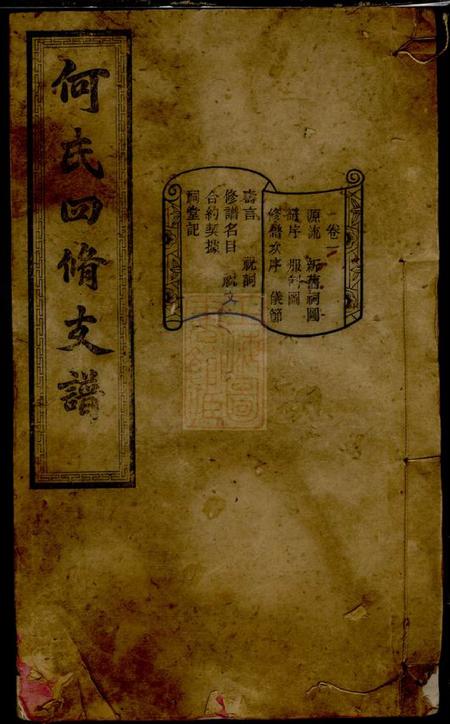 何氏四脩支譜
卷二
源流 新舊祠圖
譜序 服制圖
修譜次序 儀節
壽言 祝詞
修譜名目 祝文
合約契據
祠堂記